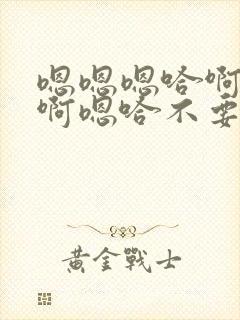 嗯嗯嗯哈啊
啊嗯哈不要
黄金戰士